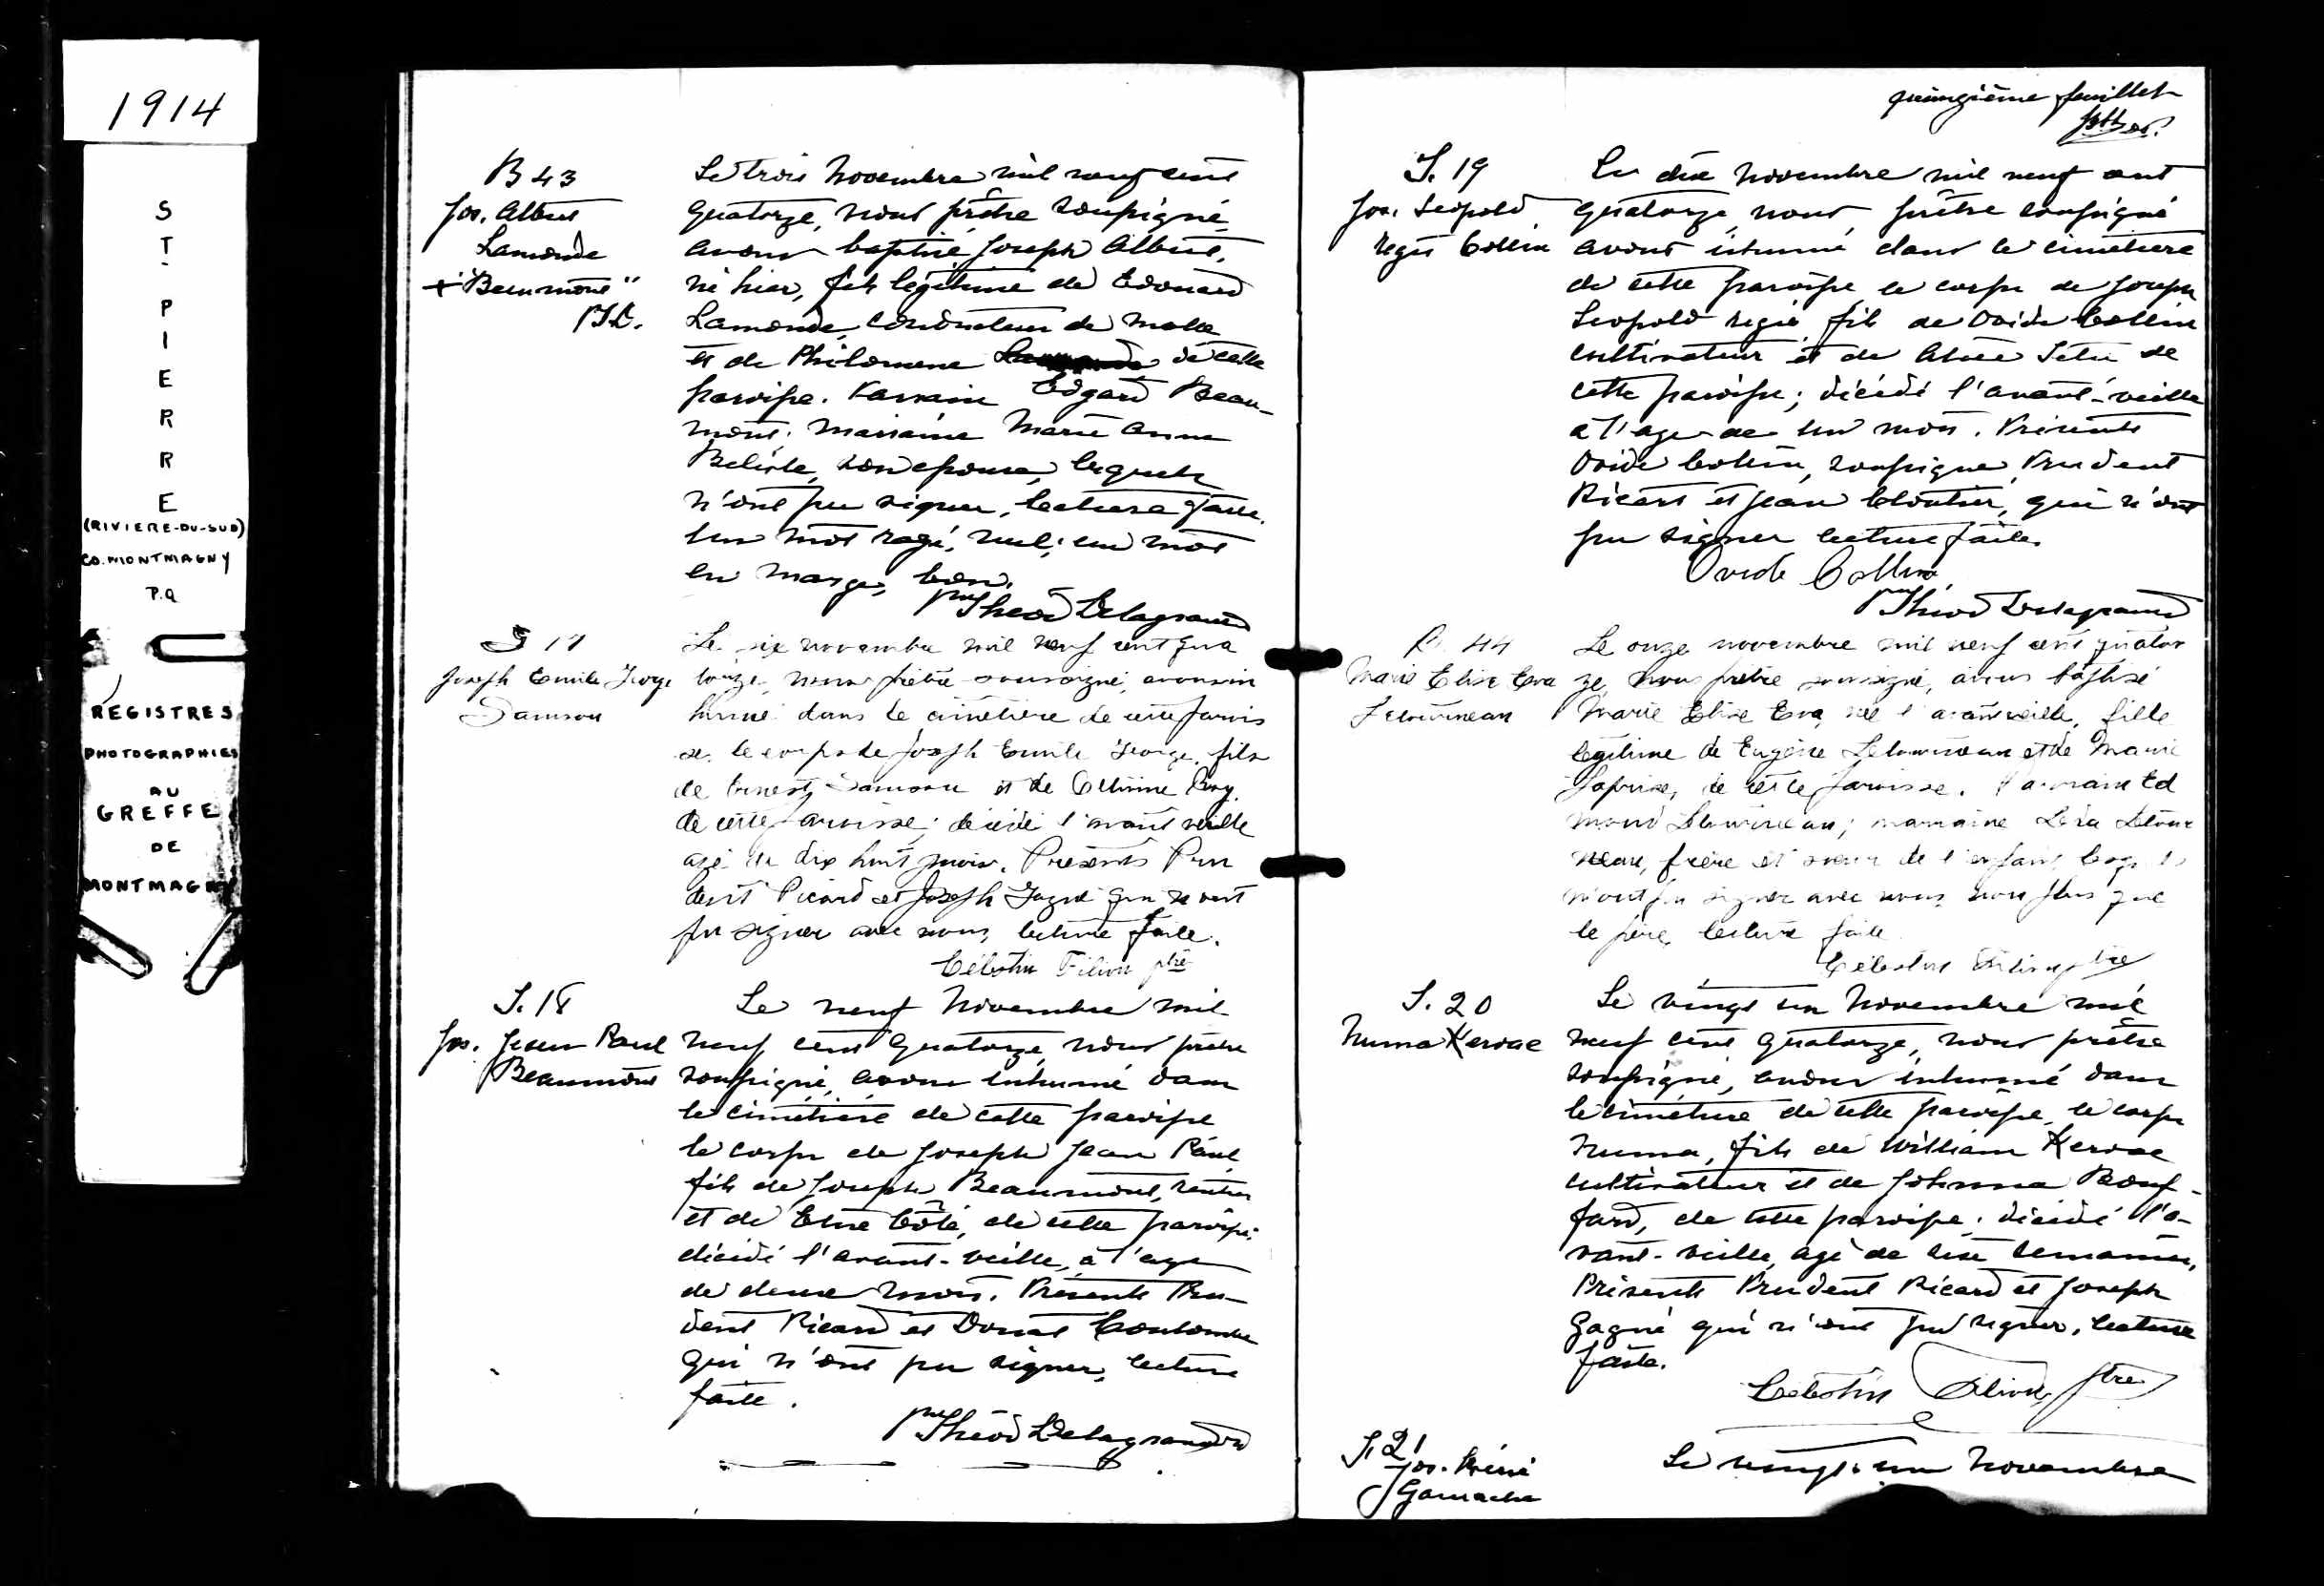 1914
ST-PIERRE
(RIVIERE-DU-SUD)
CO. MONTMAGNY
P.Q
REGISTRES
PHOTOGRAPHIES
AU
GREFFE
DE
MONTMAGNY
B 43
Jos. Albert
Lamonde
+ "Beaumont"
Le trois Novembre mil neuf cent
quatorze, nous prêtre soussigné
avons baptisé Joseph Albert,
né hier, fils légitime de Edouard
Lamonde, conducteur de malle
et de Philomene de cette
paroisse. Parrain Edgard Beau-
mont; marraine Marie Anna
Belisle, son épouse, lesquels
n'ont pu signer, lecture faite.
Un mot rayé, nul; un mot
en marge, bon.
ptre Théod Delagrave
S 17
Joseph Emile George
Samson
Le six novembre mil neuf cent qua
torze, nous prêtre soussigné, avons in
humé dans le cimetière de cette parois
se, le corps de Joseph Emile George, fils
de Ernest Samson et de Roy,
de cette paroisse; décédé l'avant veille
agé de dix huit mois. Présents Pru
dent Picard et Joseph Gagné qui n'ont
pu signer avec nous, lecture faite.
Célestin Filion ptre
S. 18
Jos. Jean Paul
Beaumont
Le neuf Novembre mil
neuf cent quatorze, nous prêtre
soussigné, avons inhumé dans
le cimetière de cette paroisse
le corps de Joseph Jean Paul,
fils de Joseph Beaumont, rentier
et de Côté, de cette paroisse;
décédé l'avant-veille, à l'age
de deux mois. Présents Pru-
dent Picard et Donat Coulombe
qui n'ont pu signer, lecture
faite.
ptre Théod Delagrave
quinzième feuillet
S. 19
Jos. Leopold
Régis Collin
Le dix Novembre mil neuf cent
quatorze, nous prêtre soussigné
avons inhumé dans le cimetière
de cette paroisse le corps de Joseph
Leopold Régis, fils de Ovide Collin
cultivateur et de de
cette paroisse; décédé l'avant-veille
à l'age de un mois. Présents
Ovide Collin, soussigné, Prudent
Picard et Jean Cloutier, qui n'ont
pu signer lecture faite.
Ovide Collin
ptre Théod Delagrave
B. 44
Marie Elise Eva
Letourneau
Le onze novembre mil neuf cent quator
ze, nous prêtre soussigné, avons baptisé
Marie Elise Eva, née l'avant veille, fille
légitime de Eugène Letourneau et de Marie
Laprise, de cette paroisse. Parrain Ed
mond Letourneau; marraine Léda Letour
neau, frère et soeur de l'enfant, lesquels
n'ont pu signer avec nous, non plus que
le père, lecture faite
Célestin Filion ptre
S. 20
Numa Keroac
Le vingt un Novembre mil
neuf cent quatorze, nous prêtre
soussigné, avons inhumé dans
le cimetière de cette paroisse, le corps
Numa, fils de William Keroac
cultivateur et de Johnna Bouf-
fard, de cette paroisse; décédé l'a-
vant-veille, agé de six semaines,
Présents Prudent Picard et Joseph
Gagné qui n'ont pu signer, lecture
faite.
Célestin Filion, ptre
S. 21
Jos. Réné
Gamache
Le vingt-un Novembre